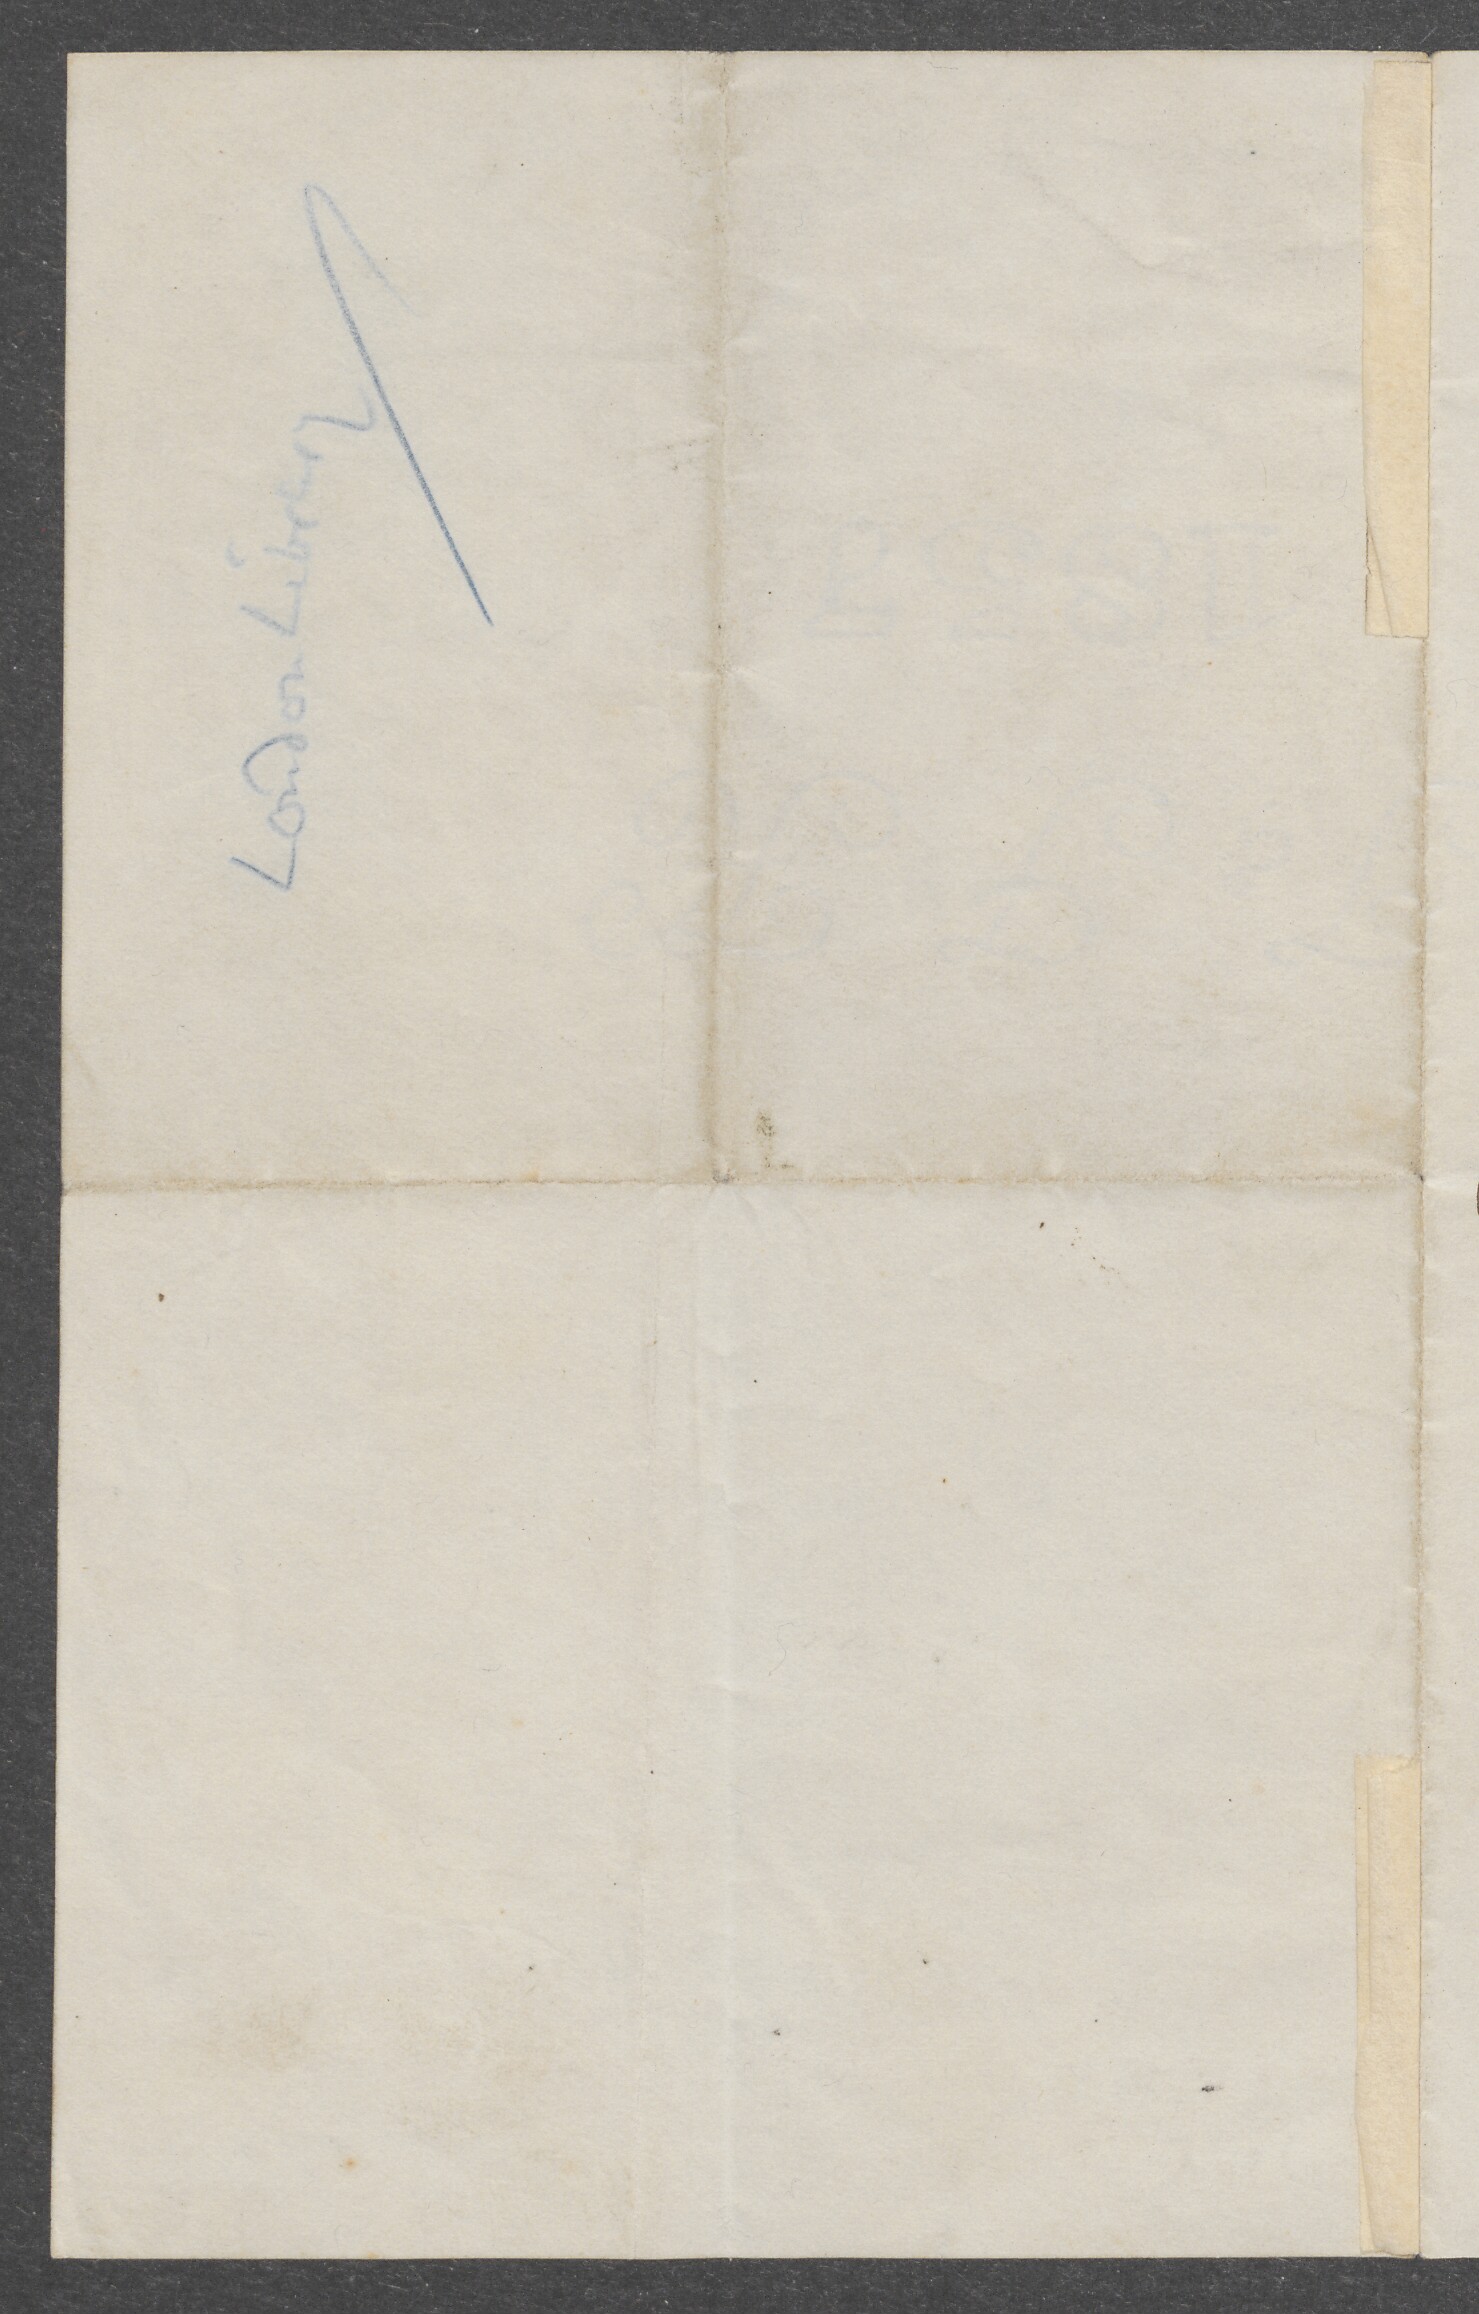 London Library